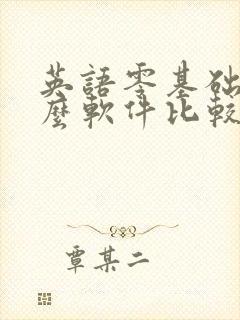 英語零基础
麼軟件比較
覃某二